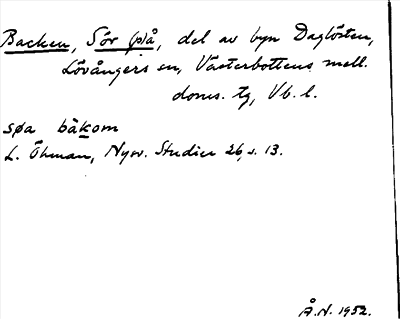 Backen, Sör på, del av byn Daglösten,
Lövångers sn, Västerbottens mell.
doms. tg, Vb. l.
søa båkom
L. Öhman, Nysv. Studier 26, s. 13.
Å. N. 1952.